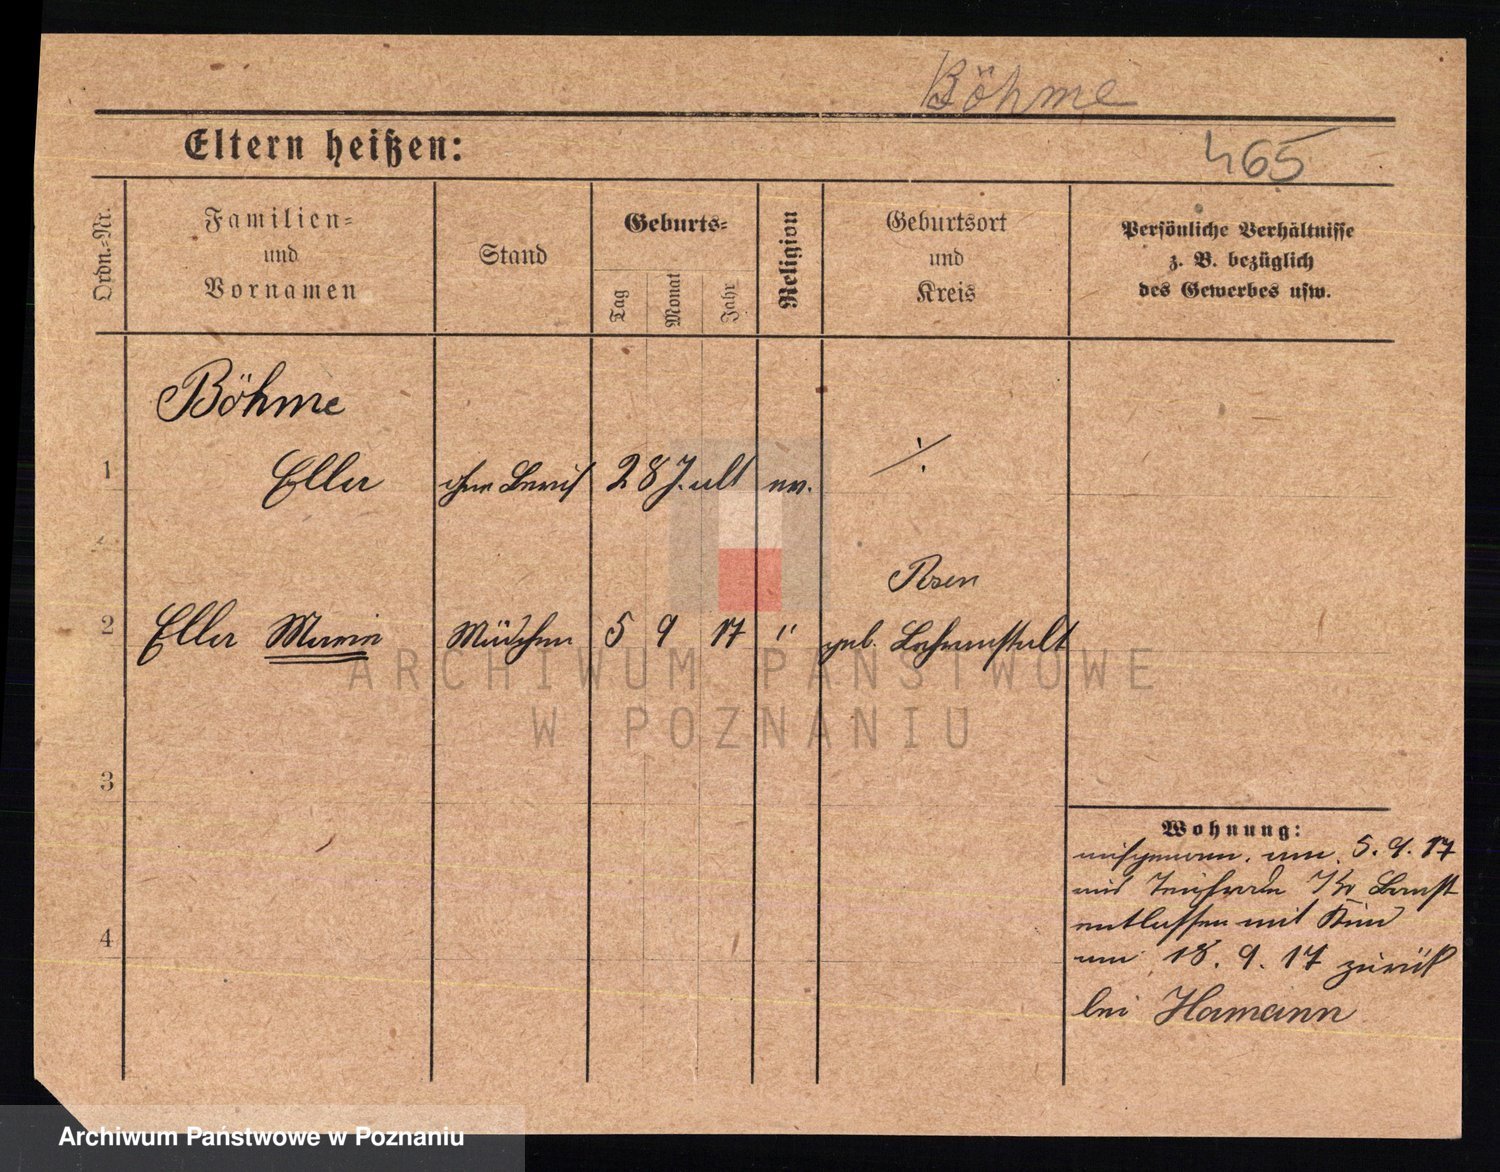 Böhme
Eltern heißen:
465
Ordn.=Nr.
Familien=
und
Vornamen
Stand
Geburts=
Tag
Monat
Jahr
Religion
Geburtsort
und
Kreis
Persönliche Verhältnisse
z. B. bezüglich
des Gewerbes usw.
Böhme
1 Ella ohne Beruf 28 J. alt ev. ·/.
Posen
2 Ella Maria Mädchen 5 9 17 " geb. Lehranstalt
3
Wohnung:
aufgenom. am 5. 9. 17
4
entlassen mit Kind
am 18. 9. 17 zurück
bei Hamann
ARCHIWUM PAŃSTWOWE
W POZNANIU
Archiwum Państwowe w Poznaniu